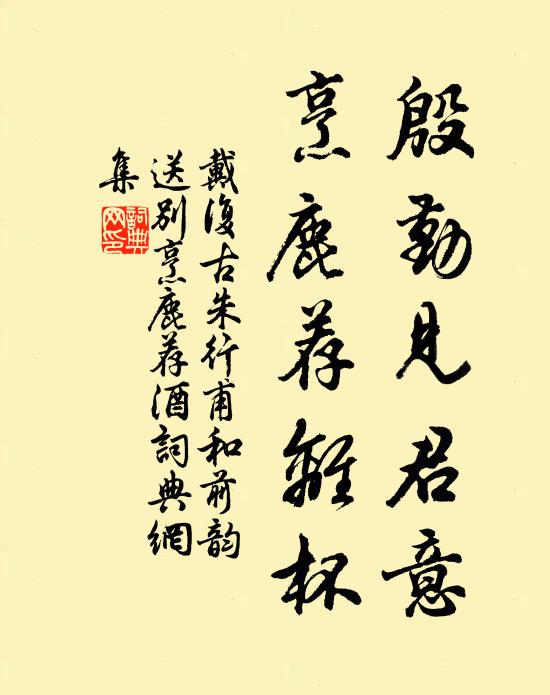 殷勤見君意
烹鹿荐離杯
戴復古朱行甫和前韵
送別烹鹿荐酒詞典網
集
詞典
网印